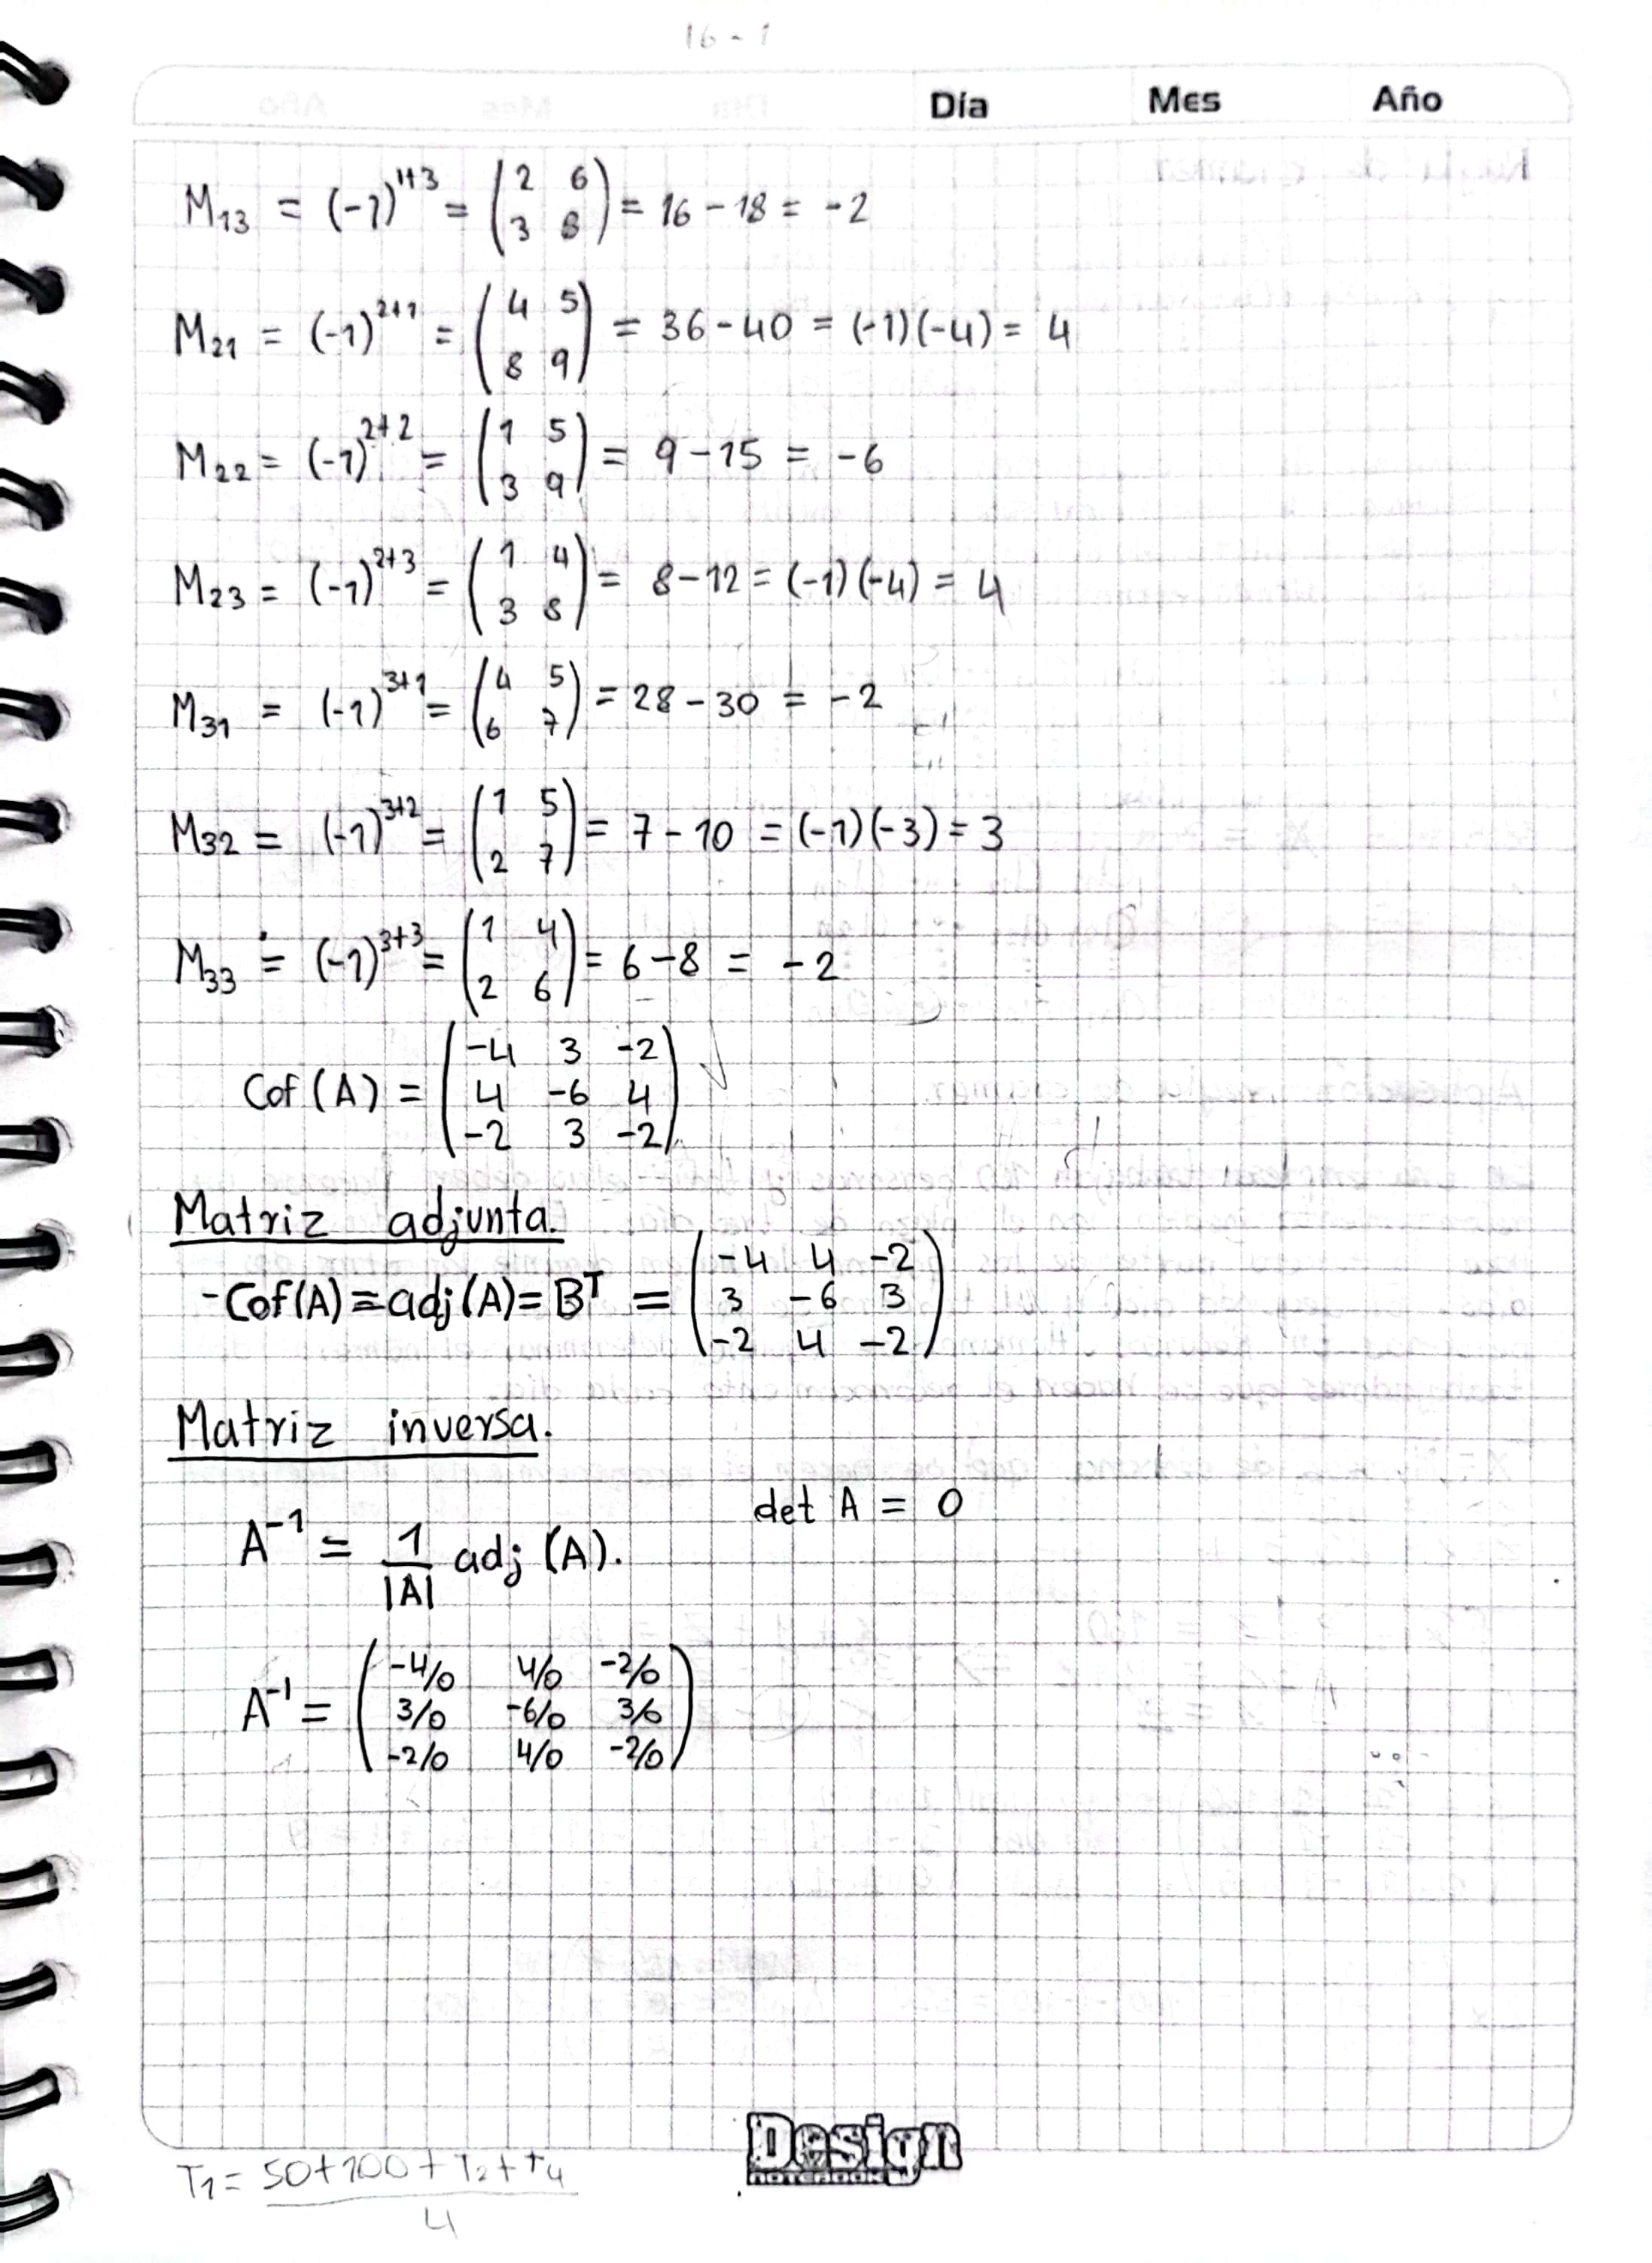 16 - 1
Día Mes Año
M13 = (-1)^1+3 = (2 6 / 3 8) = 16 - 18 = -2
M21 = (-1)^2+1 = (4 5 / 8 9) = 36 - 40 = (-1)(-4) = 4
M22 = (-1)^2+2 = (1 5 / 3 9) = 9 - 15 = -6
M23 = (-1)^2+3 = (1 4 / 3 8) = 8 - 12 = (-1)(-4) = 4
M31 = (-1)^3+1 = (4 5 / 6 7) = 28 - 30 = -2
M32 = (-1)^3+2 = (1 5 / 2 7) = 7 - 10 = (-1)(-3) = 3
M33 = (-1)^3+3 = (1 4 / 2 6) = 6 - 8 = -2
Cof(A) = (-4 3 -2 / 4 -6 4 / -2 3 -2)
Matriz adjunta.
-Cof(A) = adj(A) = B^T = (-4 4 -2 / 3 -6 3 / -2 4 -2)
Matriz inversa.
det A = 0
A^-1 = 1/|A| adj (A).
A^-1 = (-4/0 4/0 -2/0 / 3/0 -6/0 3/0 / -2/0 4/0 -2/0)
Design
NOTEBOOK
T1 = 50+100+T2+T4 / 4